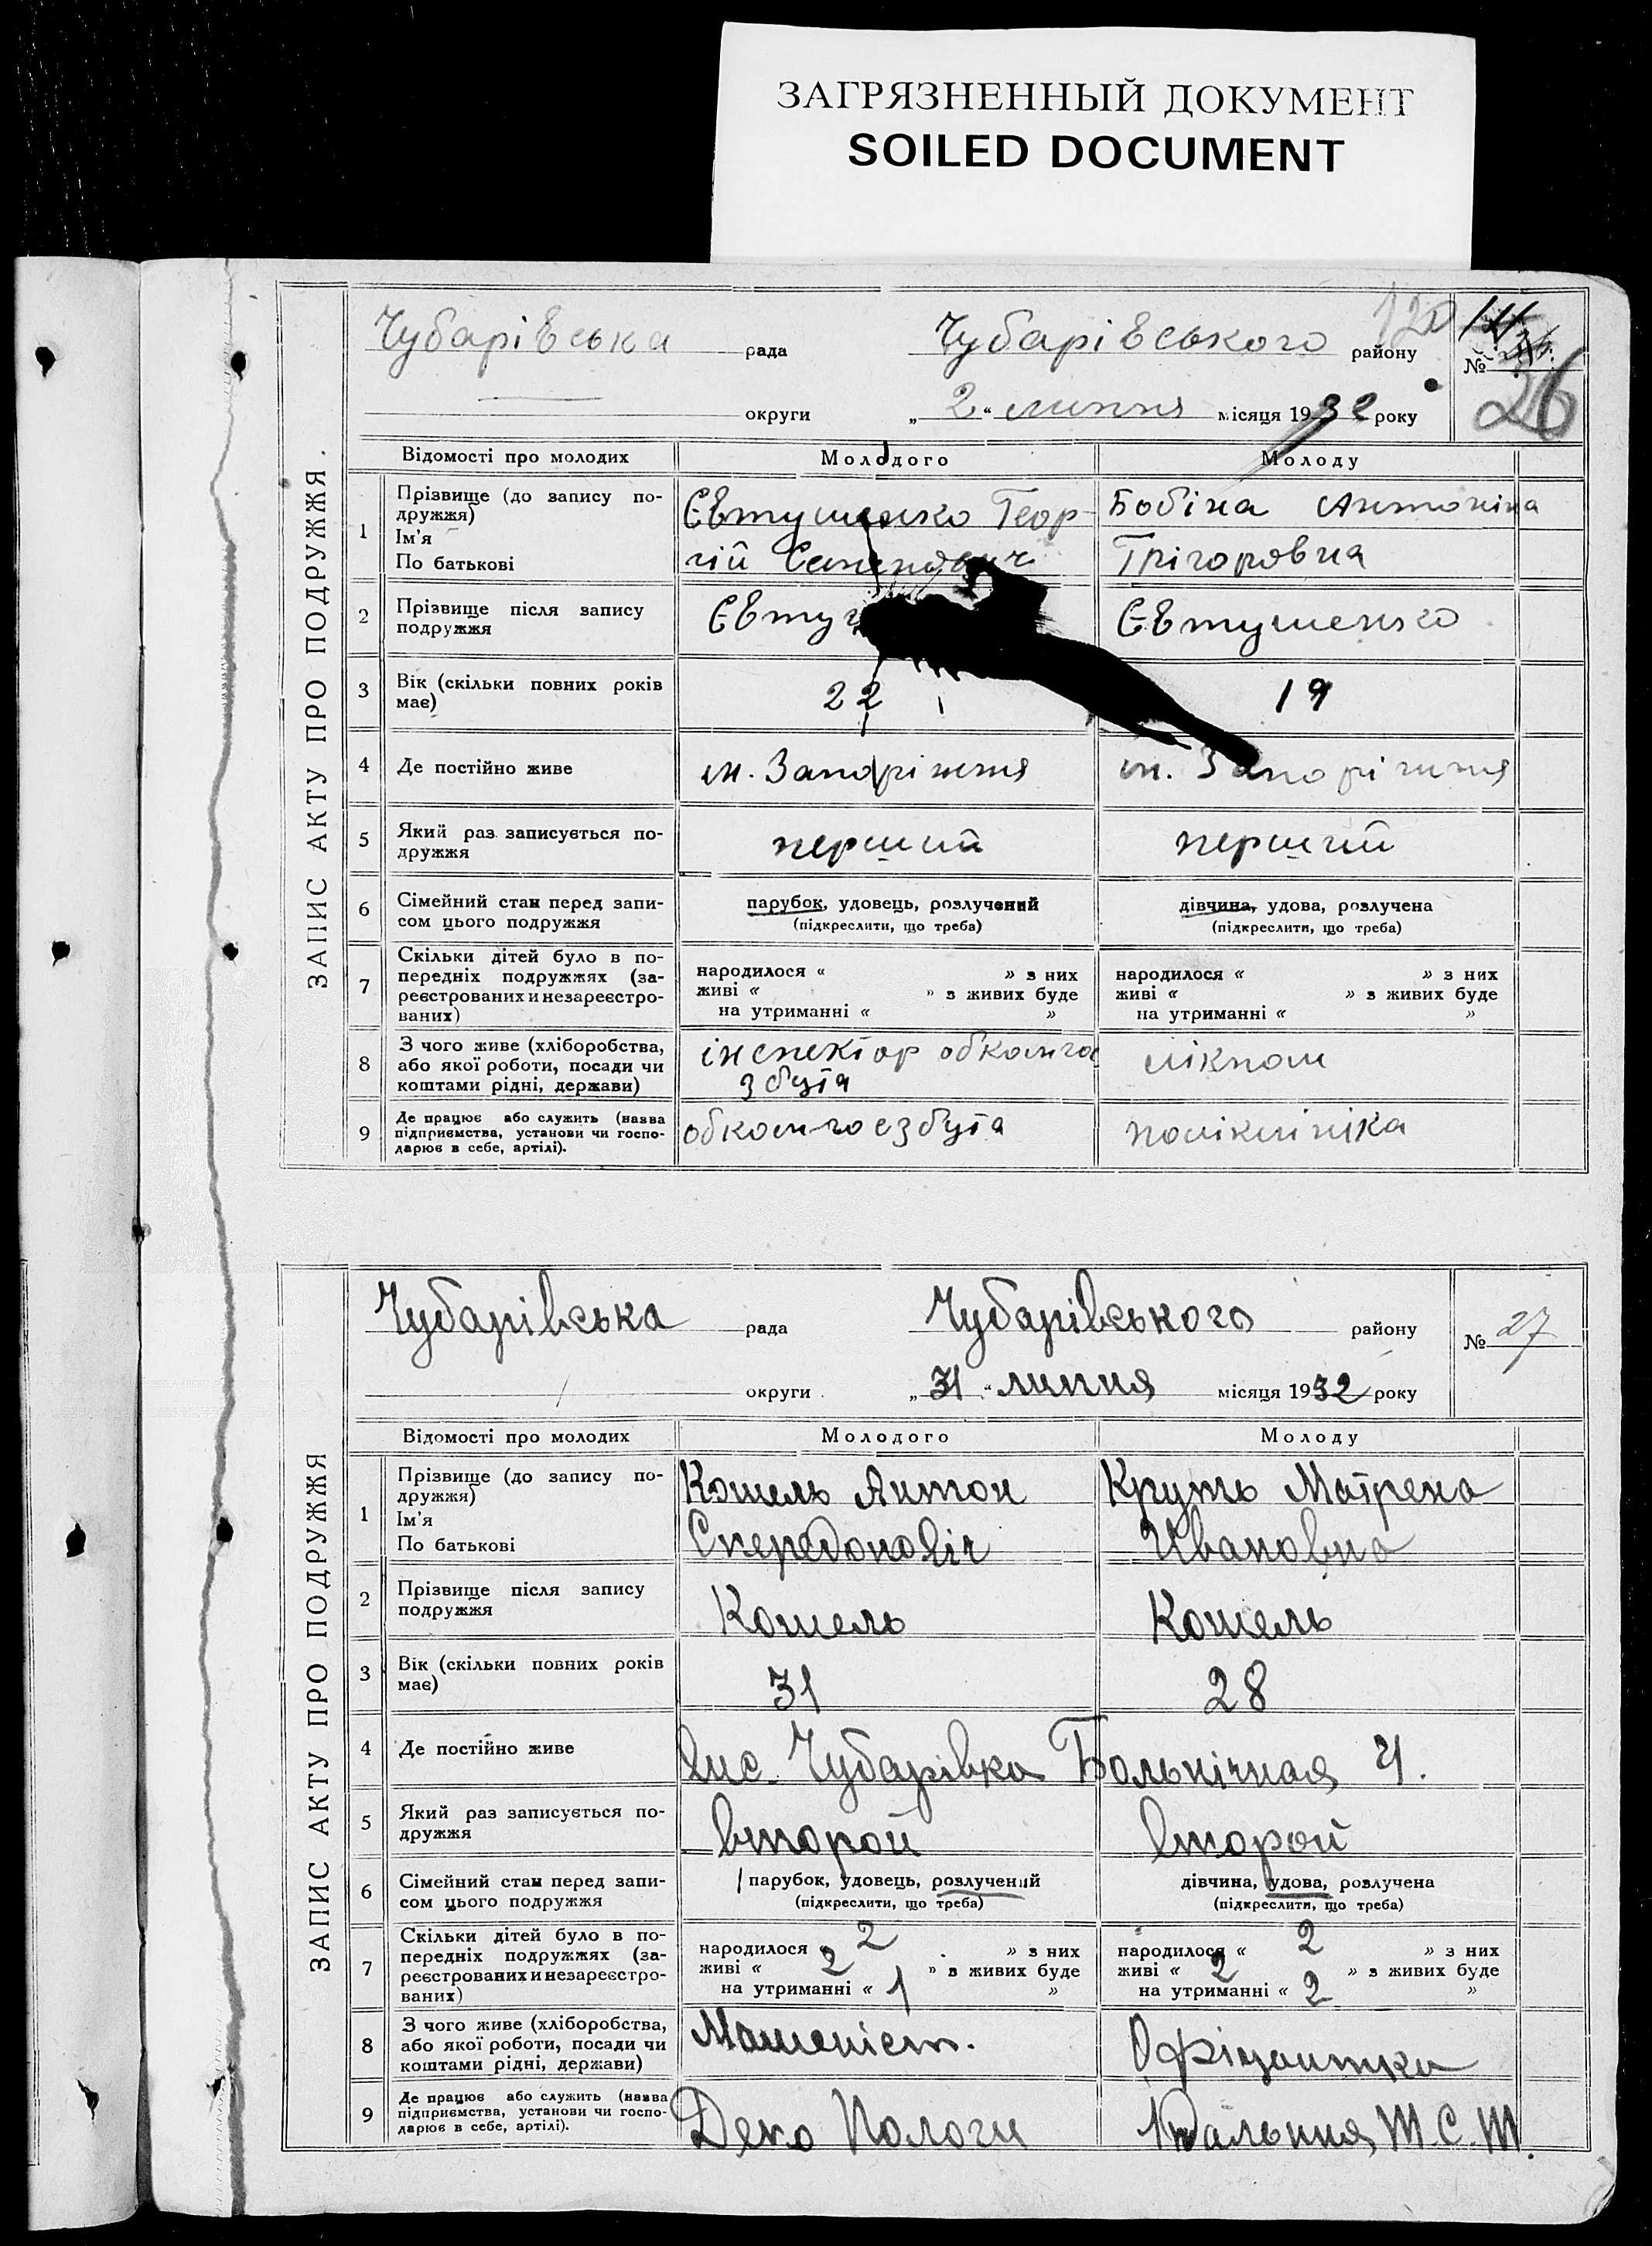 ЗАГРЯЗНЕННЫЙ ДОКУМЕНТ
SOILED DOCUMENT
ЗАПИС АКТУ ПРО ПОДРУЖЖЯ.
Чубарівська рада Чубарівського району №
120
26
округи „2“ липня місяця 1932 року
Відомості про молодих Молодого Молоду
1 Прізвище (до запису по-
дружжя)
Ім'я
По батькові
Євтушенко Геор-
гій
Бобіна Антоніна
Грігоровна
2 Прізвище після запису
подружжя
Євту
Євтушенко
3 Вік (скільки повних років
має)
22 19
4 Де постійно живе м. Запоріжжя м. Запоріжжя
5 Який раз записується по-
дружжя
перший перший
6 Сімейний стан перед запи-
сом цього подружжя
парубок, удовець, розлучений
(підкреслити, що треба)
дівчина, удова, розлучена
(підкреслити, що треба)
7 Скільки дітей було в по-
передніх подружжях (за-
реєстрованих и незареєстро-
ваних)
народилося « » з них
живі « » з живих буде
на утриманні « »
народилося « » з них
живі « » з живих буде
на утриманні « »
8 З чого живе (хліборобства,
або якої роботи, посади чи
коштами рідні, держави)
інспектор
збута
лікпом
9 Де працює або служить (назва
підприємства, установи чи госпо-
дарює в себе, артілі).
поліклініка
ЗАПИС АКТУ ПРО ПОДРУЖЖЯ
Чубарівська рада Чубарівського району № 27
округи „31“ липня місяця 1932 року
Відомості про молодих Молодого Молоду
1 Прізвище (до запису по-
дружжя)
Ім'я
По батькові
Кошель Антон
Спередоновіч
Круть Матрена
Ивановна
2 Прізвище після запису
подружжя
Кошель Кошель
3 Вік (скільки повних років
має)
31 28
4 Де постійно живе Чубарівка Больнічная 4.
5 Який раз записується по-
дружжя
второй второй
6 Сімейний стан перед запи-
сом цього подружжя
парубок, удовець, розлучений
(підкреслити, що треба)
дівчина, удова, розлучена
(підкреслити, що треба)
7 Скільки дітей було в по-
передніх подружжях (за-
реєстрованих и незареєстро-
ваних)
народилося « 2 » з них
живі « 2 » з живих буде
на утриманні « 1 »
народилося « 2 » з них
живі « 2 » з живих буде
на утриманні « 2 »
8 З чого живе (хліборобства,
або якої роботи, посади чи
коштами рідні, держави)
Машеніст.
Офіцантка
9 Де працює або служить (назва
підприємства, установи чи госпо-
дарює в себе, артілі).
Депо Пологи